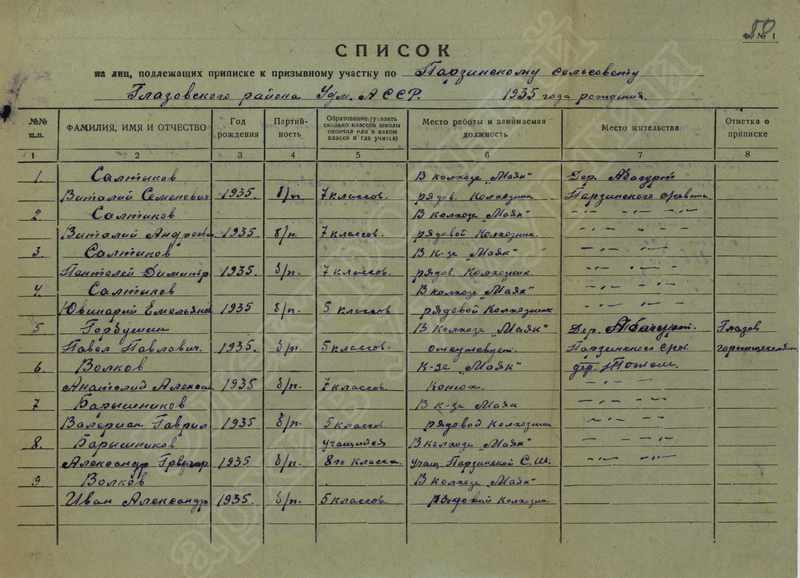 50
№ 1
СПИСОК
на лиц, подлежащих приписке к призывному участку по Парзинскому сельсовету
Глазовского района Удм. АССР. 1935 года рождения.
№№ п.п. ФАМИЛИЯ, ИМЯ И ОТЧЕСТВО Год рождения Партийность Образование (указать сколько классов школы окончил или в каком классе и где учится) Место работы и занимаемая должность Место жительства Отметка о приписке
1 2 3 4 5 6 7 8
1 Салтыков В колхозе „Маяк" Дер.
Виталий Семенович 1935. б/п. 7 классов. рядов. Колхозник Парзинского
2 Салтыков В колхозе „Маяк" – „ – „ –
Виталий Андреев 1935. б/п. 7 классов. рядовой Колхозник – „ – „ –
3. Салтыков В к-зе „Маяк" – „ – „ –
Пантелей Димитр 1935. б/п. 7 классов. рядов. Колхозник – „ – „ –
4. Салтыков В колхозе „Маяк" – „ – „ –
Емельянов 1935 б/п. 5 классов рядовой Колхозник – „ – „ –
5 Горбушин В Колхозе „Маяк" Дер. Глазов
Павел Павлович. 1935. б/п. 5 классов. отсутствует. Парзинского
6. Волков К-зе „Маяк" дер.
Анатолий Алексан 1935 б/п. 7 классов Конюх. – „ –
7 Барышников В к-зе Маяк – „ – „ –
Валериан Гаврил 1935 б/п. 5 классов рядовой Колхозник – „ –
8. Барышников учащийся В колхозе „Маяк" – „ –
Александр Григор 1935 б/п. 8го класса учащ. Парзинской С.Ш. – „ – „ –
9 Волков В колхозе „Маяк"
Иван Александр 1935. б/п. 5 классов рядовой Колхозник